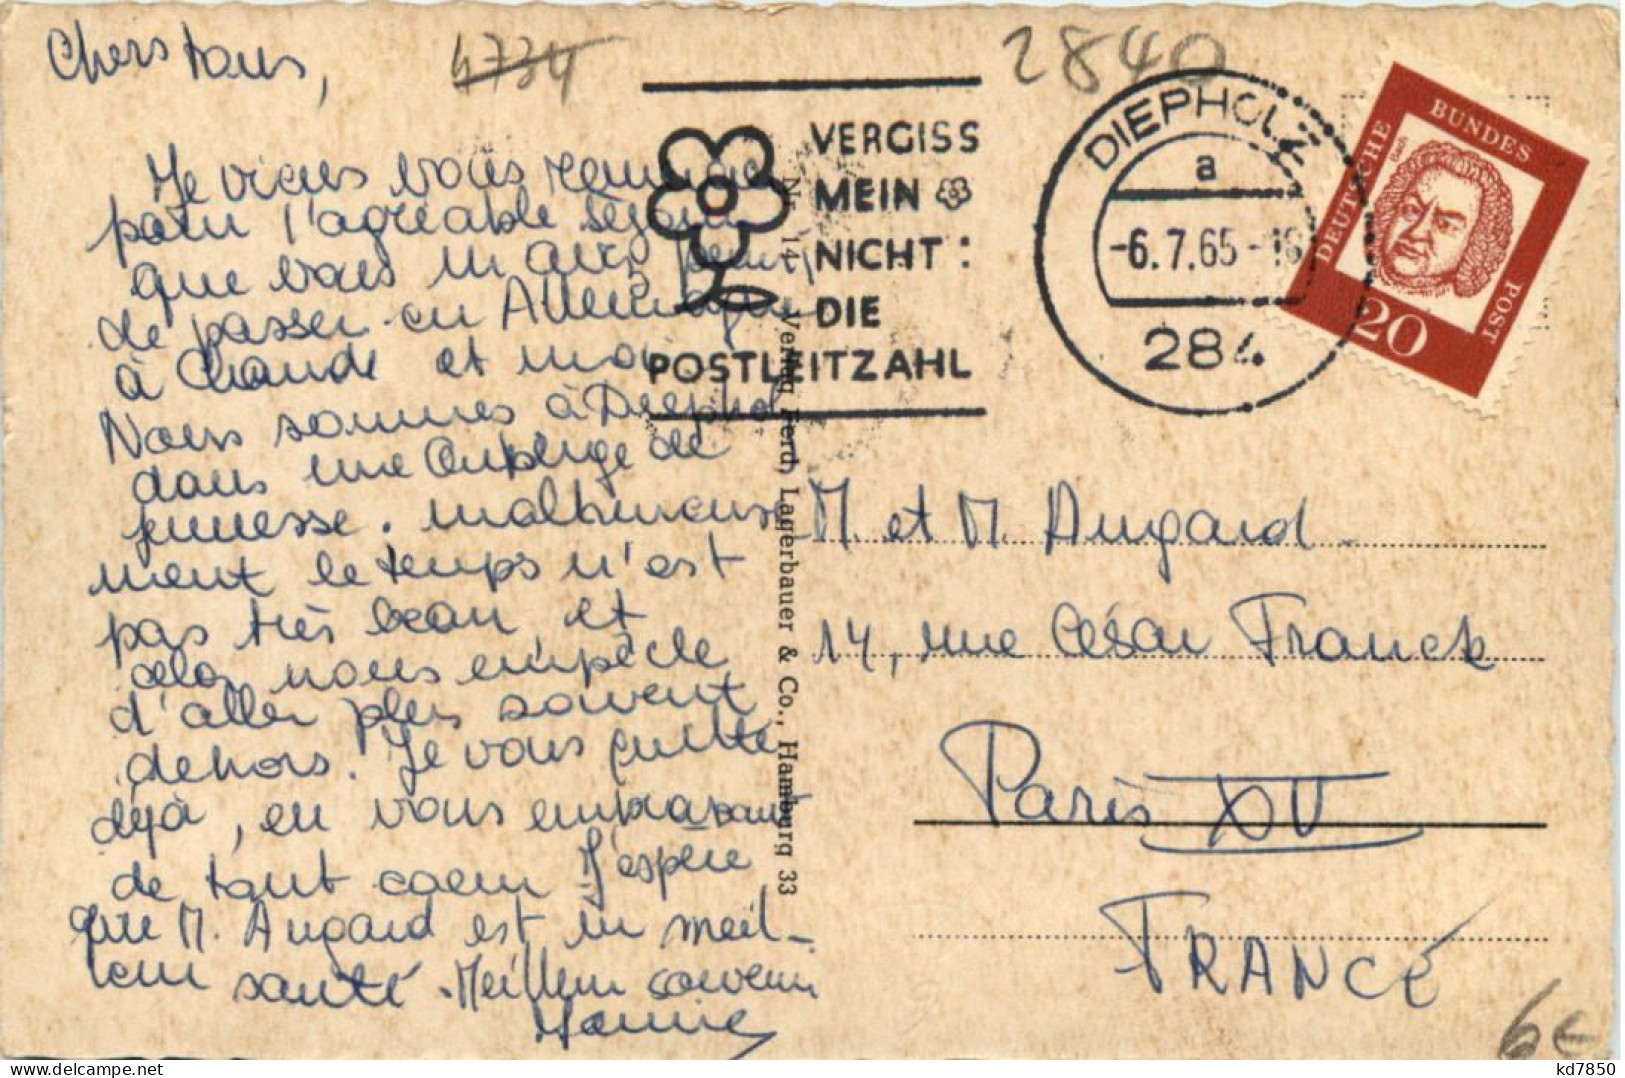 Chers tous,
4734
2840
Je viens vous remercier
pour l'agréable séjour
que vous m'avez permis
de passer en Allemagne
à Claude et moi
Nous sommes à Diepholz
dans une Auberge de
jeunesse. Malheureuse
ment le temps n'est
pas très beau, et
cela nous empêche
d'aller plus souvent
dehors. Je vous quitte
déjà, en vous embrassant
de tout coeur J'espère
que M. Augard est en meil-
leur santé. Meilleur souvenir
VERGISS
MEIN
NICHT:
DIE
POSTLEITZAHL
DIEPHOLZ
a
-6.7.65-18
284
DEUTSCHE
BUNDES
POST
Bach
20
Nr. 14 Verlag Ferd. Lagerbauer & Co., Hamburg 33
M. et M. Augard
14, rue César Franck
Paris XV
FRANCE
6€
kd7850